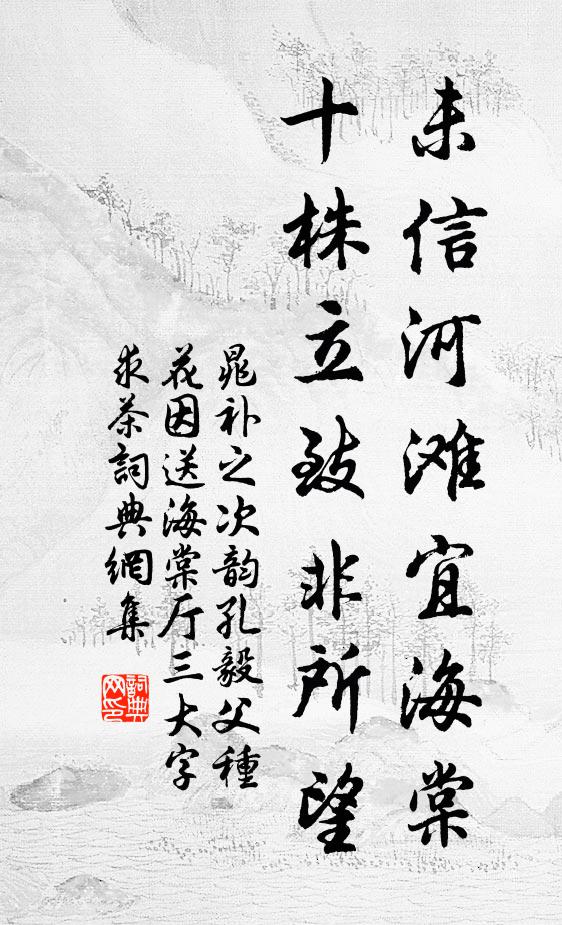 未信河滩宜海棠
十株立致非所望
晁补之次韵孔毅父種
花因送海棠厅三大字
求茶詞典網集
詞典
网印